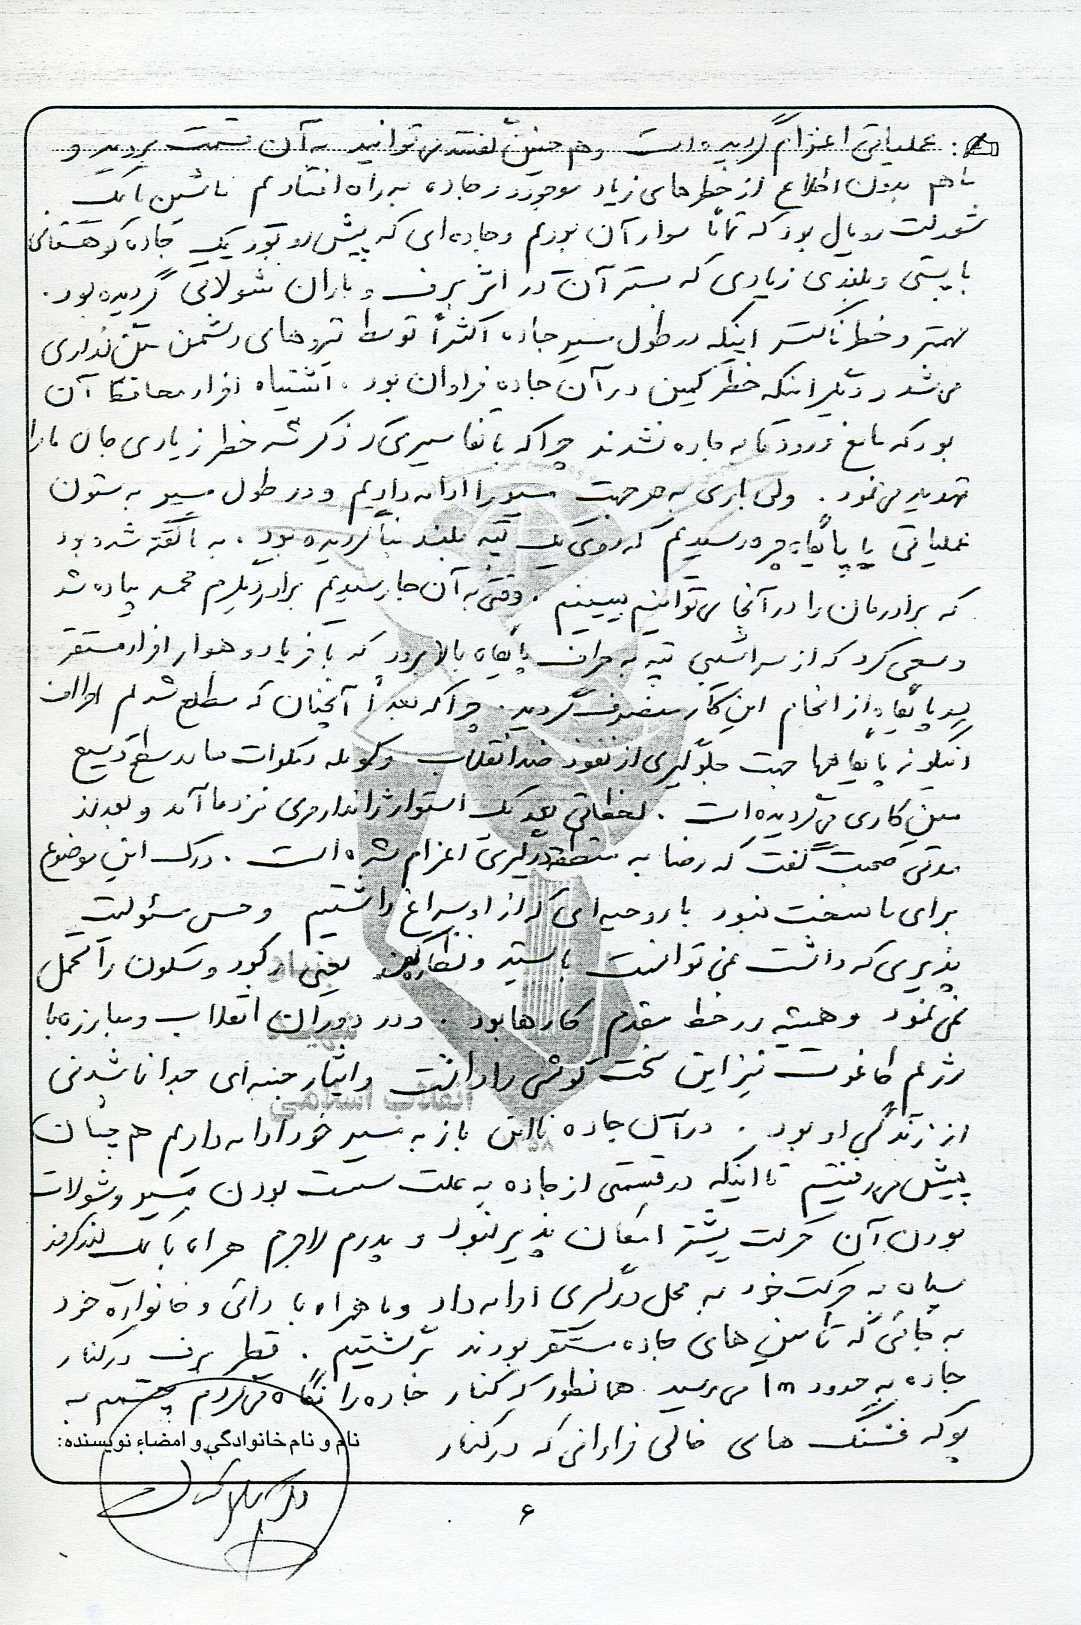 عملیاتی اعزام گردیده است و هم چنین گفتند می توانید به آن قسمت بروید و
ما هم بدون اطلاع از خطرهای زیاد موجود در جاده به راه افتادیم ماشین ما یک
شورلت رویال بود که تماماً سوار آن بودیم و جاده ای که پیش رو بود یک جاده کوهستانی
با پستی و بلندی زیادی که بستر آن در اثر برف و باران شولاتی گردیده بود.
مهمتر و خطرناکتر اینکه در طول مسیر جاده اکثراً توسط نیروهای دشمن مین گذاری
می شد و دیگر اینکه خطر کمین در آن جاده فراوان بود. اشتباه افراد محافظ آن
بود که مانع ورود ما به جاده نشدند چرا که بنا سیری که ذکر شد خطر زیادی جان ما را
تهدید می نمود. ولی باری به هر جهت مسیر را ادامه دادیم و در طول مسیر به ستون
عملیاتی یا پایگاه رسیدیم که روی یک تپه بلند بنا گردیده بود. به ما گفته شده بود
که برادرمان را در آنجا می توانیم ببینیم. وقتی به آن جا رسیدیم برادر دیگرم محمد پیاده شد
و سعی کرد که از سراشیبی تپه به طرف پایگاه بالا برود که با فریاد و هوار افراد مستقر
در پایگاه از انجام این کار منصرف گردید. چرا که بعداً آنچنان که مطلع شدیم اطراف
اینگونه پایگاهها جهت جلوگیری از نفوذ ضد انقلاب و کومله و دمکرات ها در سطح وسیع
مین کاری می گردیده است. لحظاتی بعد یک استوار ژاندارمری نزد ما آمد و بعد از
مدتی صحبت گفت که رضا به منطقه درگیری اعزام شده است. درک این موضوع
برای ما سخت نبود با روحیه ای که از او سراغ داشتیم و حس مسئولیت
پذیری که داشت نمی توانست بایستد و نظاره گر یعنی رکود و سکون را تحمل
نمی نمود و همیشه در خط مقدم کارها بود. و در دوران انقلاب و مبارزه با
رژیم طاغوت نیز این سخت کوشی را داشت و ایثار جنبه ای جدا ناشدنی
از زندگی او بود. در آن جاده ناامن باز به مسیر خود ادامه دادیم هم چنان
پیش می رفتیم تا اینکه در قسمتی از جاده به علت سست بودن مسیر و شولات
بودن آن حرکت بیشتر امکان پذیر نبود و پدرم لاجرم همراه با یک لندکروز
سپاه به حرکت خود به محل درگیری ادامه داد و ما همراه با دائی و خانواده خود
به جائی که تأمین های جاده مستقر بودند برگشتیم. قطر برف در کنار
جاده به حدود 1m می رسید. همانطور که کنار جاده را نگاه می کردم چشمم به
پوکه فشنگ های خالی فراوانی که در کنار
نام و نام خانوادگی و امضاء نویسنده:
۶